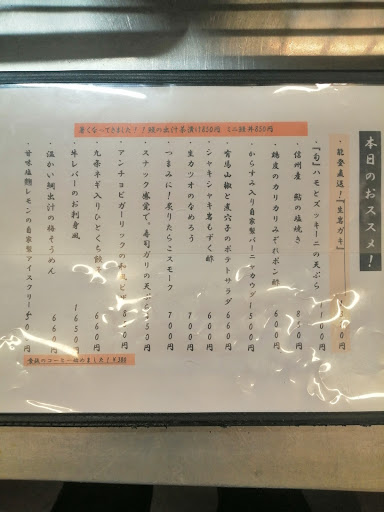 本日のおススメ!
能登直送!『生岩ガキ』
『旬』ハモとズッキーニの天ぷら
信州産 鮎の塩焼き
鶏皮のカリカリみぞれポン酢 600円
からすみ入り自家製バーニャカウダー 500円
有馬山椒と煮穴子のポテトサラダ 660円
シャキシャキ岩もずく酢 500円
生カツオのなめろう 700円
つまみに!炙りたらこスモーク 700円
スティック感覚で。寿司ガリの天ぷら 550円
アンチョビガーリックの
九条ネギ入りひとくち餃 660円
豚レバーのお刺身風 1650円
温かい鯛出汁の梅そうめん 660円
甘味塩麹レモンの自家製アイスクリーム
暑くなってきました!!鰻の出汁茶漬け1650円 ミニ鰻丼850円
食後のコーヒー始めました!¥388